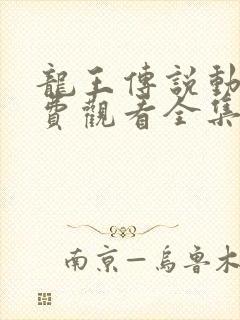 龍王傳説動
費觀看全集
南京—烏魯木